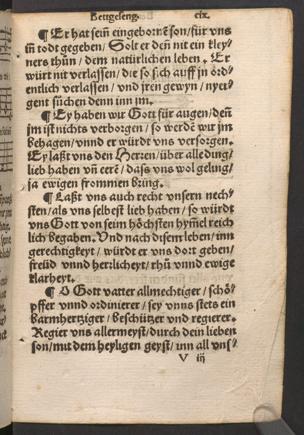 Bettgeseng. cix.
¶ Er hat sein eingebornē son/für vns
iñ todt gegeben/Solt er deñ nit ein kley/
ners thůn/dem natürlichen leben. Er
würt nit verlassen/die so sich auff in ord/
entlich verlassen/vnd jren gewyn/nyer/
gent sůchen denn inn jm.
¶ Ey haben wir Gott für augen/deñ
jm ist nichts verborgen/so werdē wir jm
behagen/vnnd er würdt vns versorgen.
Ey laßt vns den Herren/über alle ding/
lieb haben vñ eerē/dass vns wol geling/
ja ewigen frommen bring.
¶ Laßt vns auch recht vnsern nech/
sten/als vns selbest lieb haben/so würdt
vns Gott von seim höchsten hym̃el reich
lich begaben. Vnd nach disem leben/inn
gerechtigkeyt/würdt er vns dort geben/
freüd vnnd herrlicheyt/rhů vnnd ewige
klarheyt.
¶ O Gott vatter allmechtiger/schö/
pffer vnnd ordinierer/sey vnns stets ein
barmhertziger/beschützer vnd regierer.
Regier vns allermeyst/durch dein lieben
son/mit dem heyligen geyst/inn all vns/
V iij